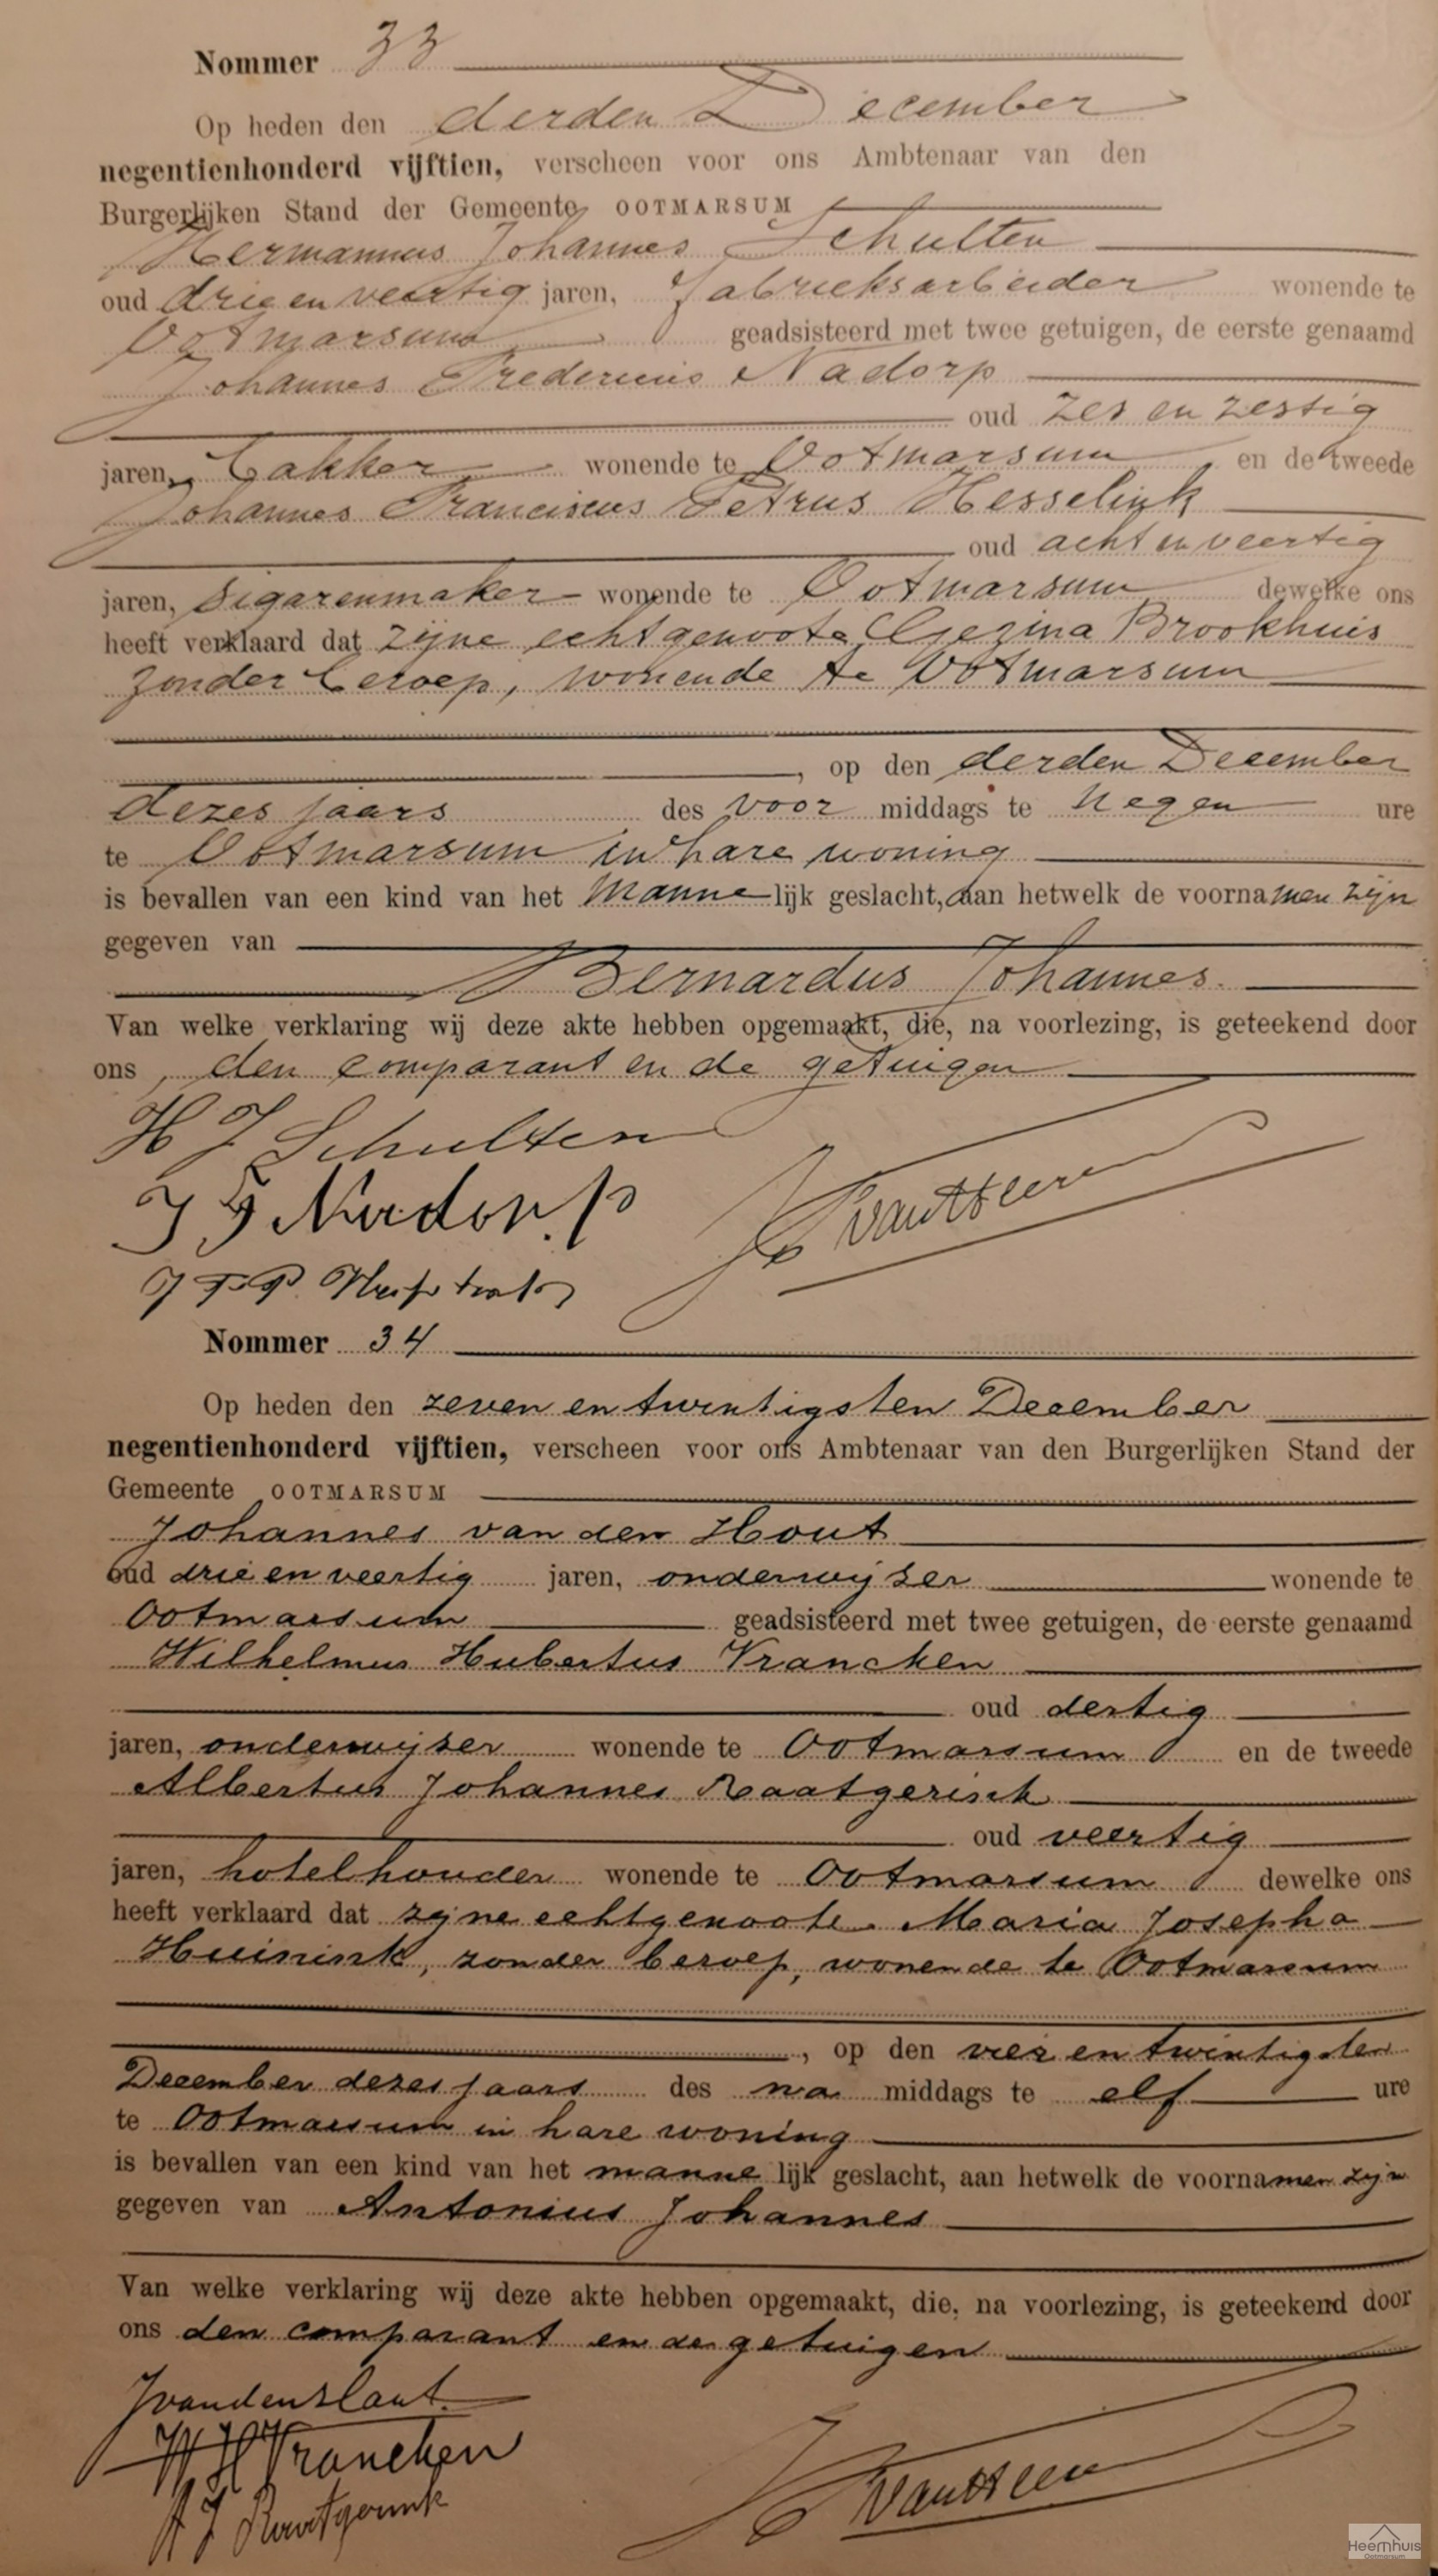 Nommer 33
Op heden den derden December
negentienhonderd vijftien, verscheen voor ons Ambtenaar van den
Burgerlijken Stand der Gemeente OOTMARSUM
Hermannus Johannes Schulten
oud drie en veertig jaren, fabrieksarbeider wonende te
Ootmarsum geadsisteerd met twee getuigen, de eerste genaamd
Johannes Fredericus Nadorp
oud zes en zestig
jaren, bakker wonende te Ootmarsum en de tweede
Johannes Franciscus Petrus Hesselink
oud acht en veertig
jaren, sigarenmaker wonende te Ootmarsum dewelke ons
heeft verklaard dat zijne echtgenoote Gezina Brookhuis
zonder beroep, wonende te Ootmarsum
, op den derden December
dezes jaars des voor middags te negen ure
te Ootmarsum in hare woning
is bevallen van een kind van het manne lijk geslacht, aan hetwelk de voornamen zijn
gegeven van
Bernardus Johannes.
Van welke verklaring wij deze akte hebben opgemaakt, die, na voorlezing, is geteekend door
ons, den comparant en de getuigen
H J Schulten
J F Nadorp
J F P
Nommer 34
Op heden den zeven en twintigsten December
negentienhonderd vijftien, verscheen voor ons Ambtenaar van den Burgerlijken Stand der
Gemeente OOTMARSUM
Johannes van den Hout
oud drie en veertig jaren, onderwijzer wonende te
Ootmarsum geadsisteerd met twee getuigen, de eerste genaamd
Wilhelmus Hubertus Vrancken
oud dertig
jaren, onderwijzer wonende te Ootmarsum en de tweede
Albertus Johannes Raatgerink
oud veertig
jaren, hotelhouder wonende te Ootmarsum dewelke ons
heeft verklaard dat zijne echtgenoote Maria Josepha
Huinink, zonder beroep, wonende te Ootmarsum
, op den vier en twintigsten
December dezes jaars des na middags te elf ure
te Ootmarsum in hare woning
is bevallen van een kind van het manne lijk geslacht, aan hetwelk de voornamen zijn
gegeven van Antonius Johannes
Van welke verklaring wij deze akte hebben opgemaakt, die, na voorlezing, is geteekend door
ons den comparant en de getuigen
JvandenHout
W H Vrancken
A J Raatgerink
Heemhuis
Ootmarsum